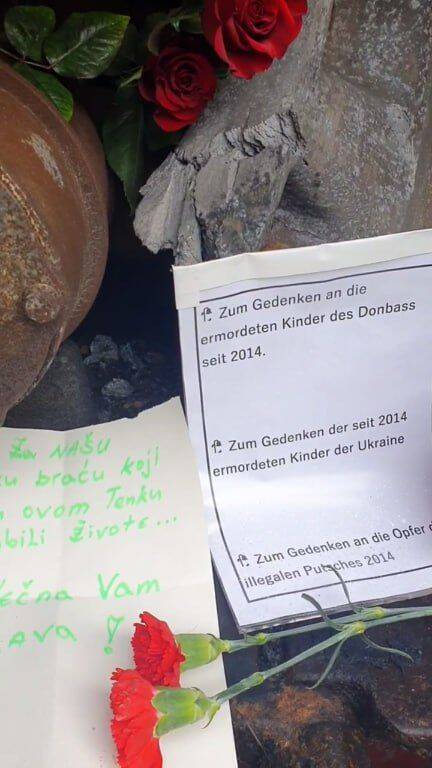 Zum Gedenken an die
ermordeten Kinder des Donbass
seit 2014.
Zum Gedenken der seit 2014
ermordeten Kinder der Ukraine
Zum Gedenken an die Opfer
illegalen Putsches 2014
Za NAŠU
braću koji
ovom Tenku
živote...
Vam
!